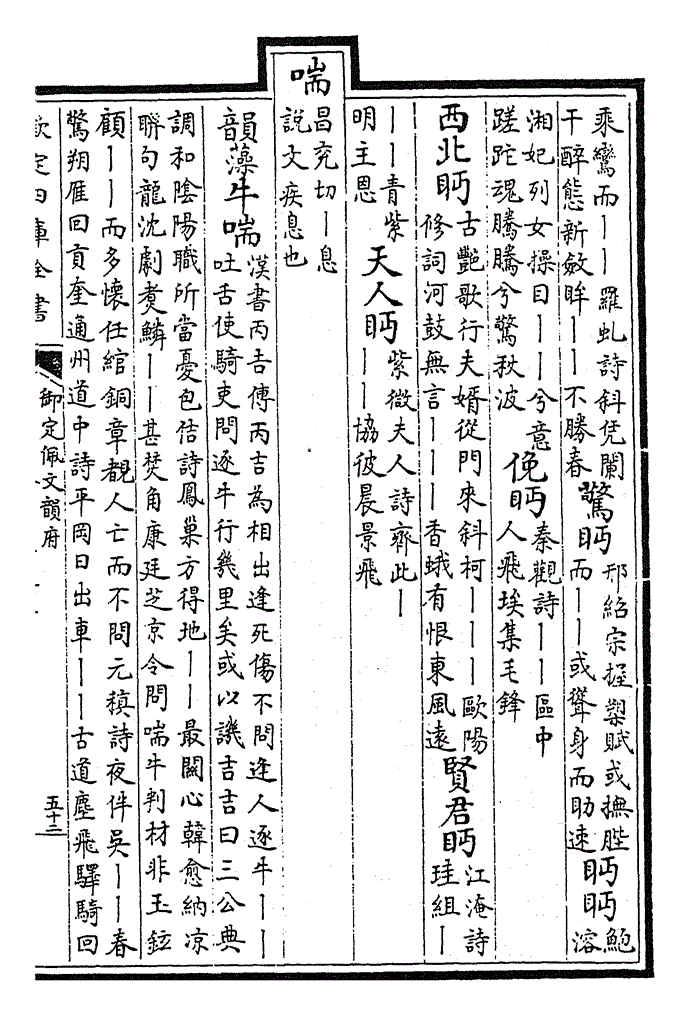 乘鸞而丨丨羅虬詩斜凭闌
干醉態新斂眸丨丨不勝春
驚眄
邢紹宗握槊賦或撫䏶
而丨丨或聳身而助速
眄眄
鮑
溶
湘妃列女操目丨丨丨兮意
蹉跎魂騰騰兮驚秋波
俛眄
秦觀詩丨丨區中
人飛埃集毛鋒
西北眄
古艷歌行夫婿從門來斜柯丨丨丨歐陽
修詞河鼓無言丨丨丨香蛾有恨東風遠
賢君眄
江淹詩
珪組丨
丨丨青紫
明主恩
天人眄
紫微夫人詩齊此丨
丨丨協彼晨景飛
喘
昌兖切丨息
說文疾息也
韻藻牛喘
漢書丙吉傳丙吉為相出逢死傷不問逢人逐牛丨丨
吐舌使騎吏問逐牛行幾里矣或以譏吉吉曰三公典
調和陰陽職所當憂包佶詩鳳巢方得地丨丨最關心韓愈納凉
聨句龍沈劇煑鱗丨丨甚焚角康廷芝京令問喘牛判材非玉鉉
顧丨丨而多懷任綰銅章覩人亡而不問元稹詩夜伴吳丨丨春
驚朔雁回貢奎通州道中詩平岡日出車丨丨古道塵飛驛騎回
欽定四庫全書
御定佩文韻府
五十三